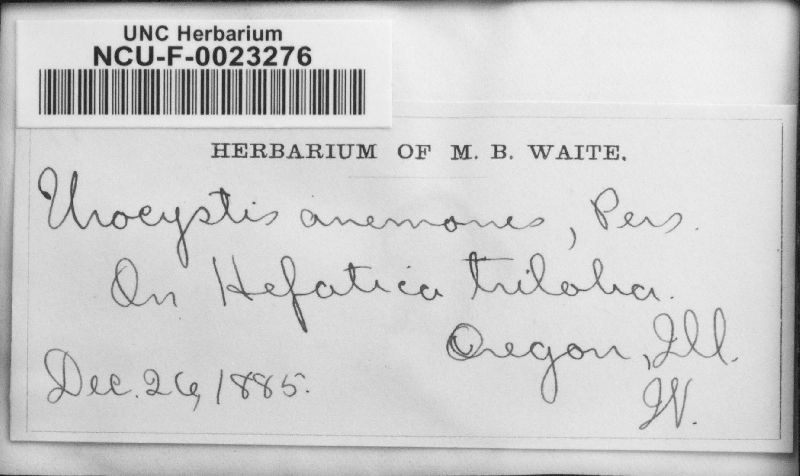 UNC Herbarium
NCU-F-0023276
HERBARIUM OF M. B. WAITE.
Urocystis anemones, Pers.
On Hepatica triloba.
Oregon, Ill.
Dec. 26, 1885.
W.